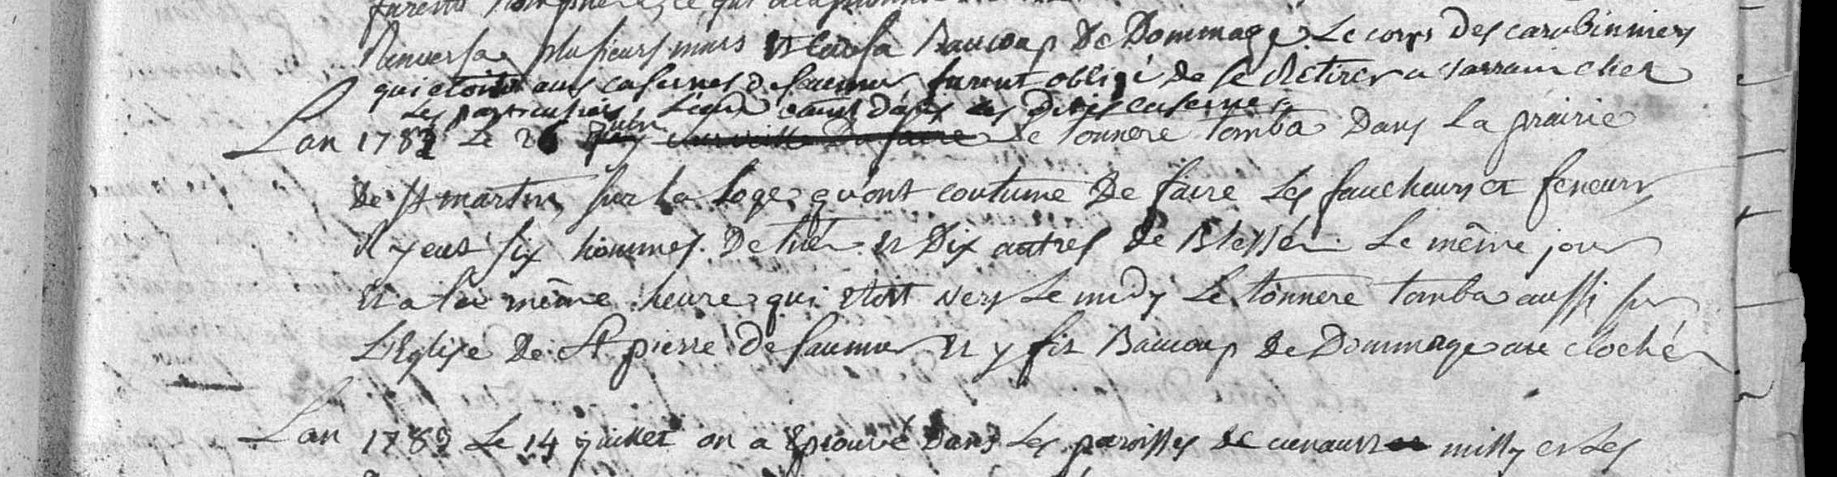 Renversa plusieurs murs et causa Baucoup De Dommage. Le corps des carabinniers
qui etoit aux casernes de saumur furent obligé de se Retirer a varrain chez
Les particuliers
Lan 178 Le 26 Le tonnere tomba Dans La prairie
De st martin sur la loge qu'ont coutume De faire Les faucheurs et feneurs
il y eut six hommes De tué et Dix autres de Blessé. Le même jour
et a la même heure qui etoit vers Le midy Le tonnere tomba aussi sur
L'Eglise de St pierre de saumur et y fit Baucoup de Dommage au cloché
Lan 178 Le 14 juillet on a Eprouvé Dans Les paroisses de cunault milly et Les